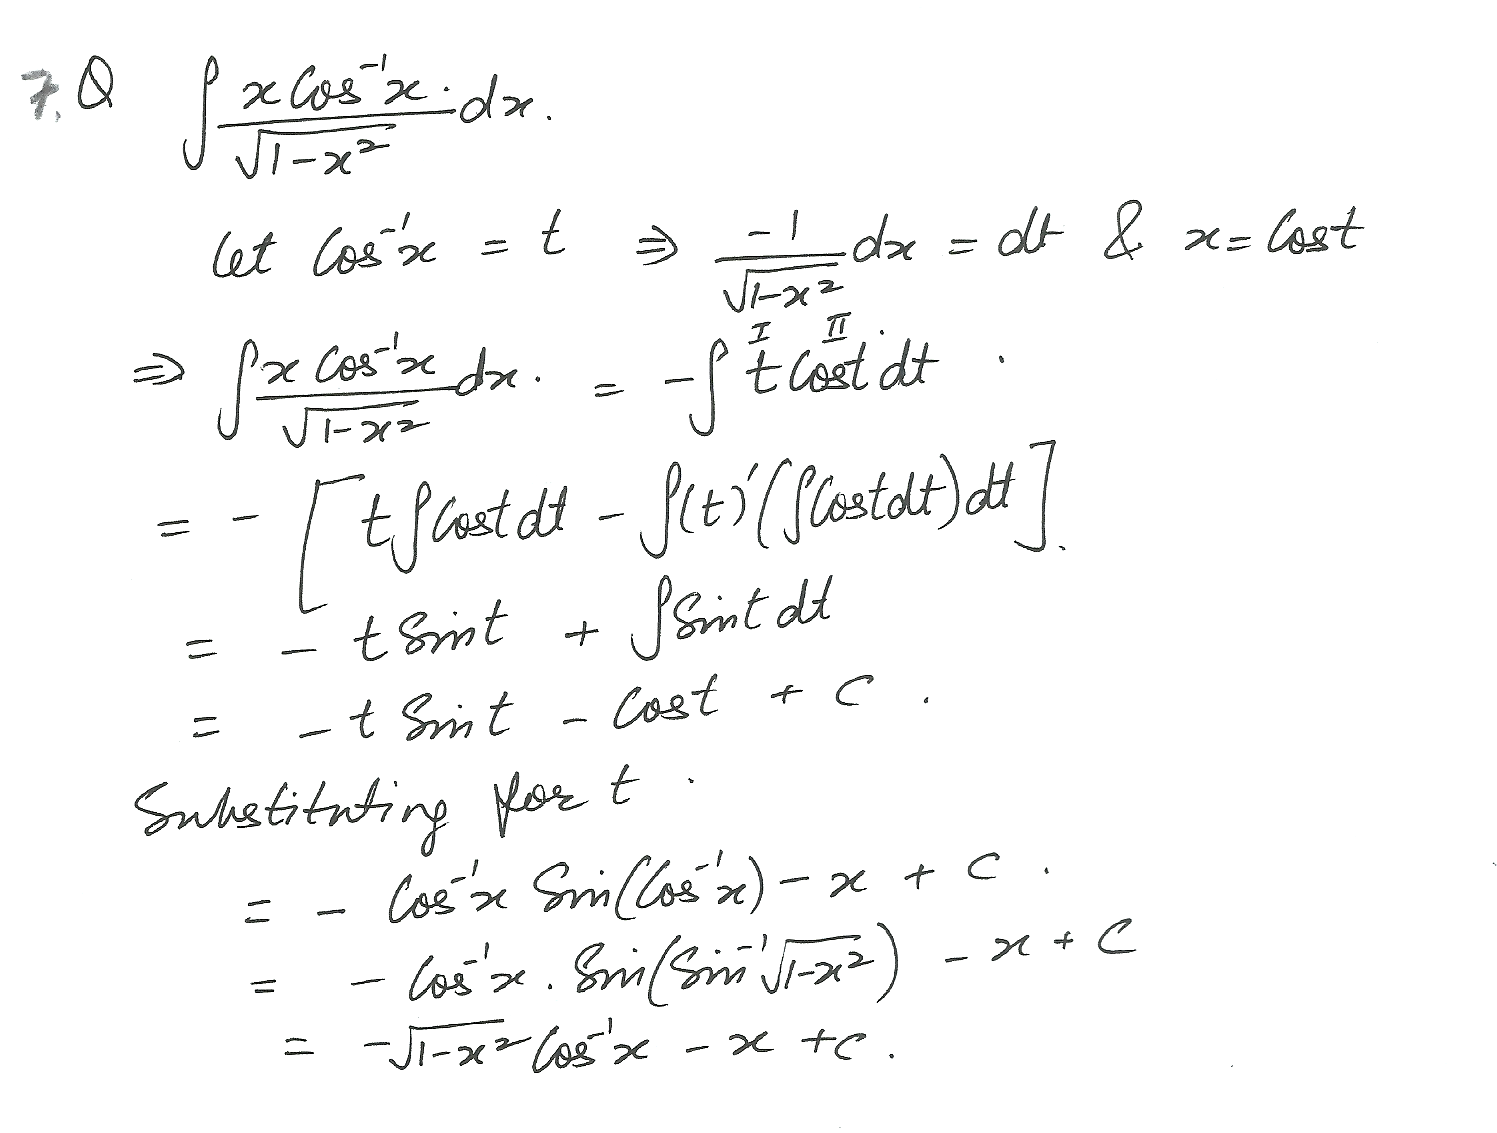 7. Q ∫ x Cos⁻¹x / √1-x² · dx.
Let Cos⁻¹x = t ⇒ -1/√1-x² dx = dt & x = Cost
⇒ ∫ x Cos⁻¹x / √1-x² dx. = -∫ t Cost dt .
I II
= - [ t ∫Cost dt - ∫(t)′(∫Cost dt) dt ].
= - t Sint + ∫Sint dt
= - t Sint - Cost + C .
Substituting for t .
= - Cos⁻¹x Sin(Cos⁻¹x) - x + C .
= - Cos⁻¹x . Sin(Sin⁻¹√1-x²) - x + C
= -√1-x² Cos⁻¹x - x + C .